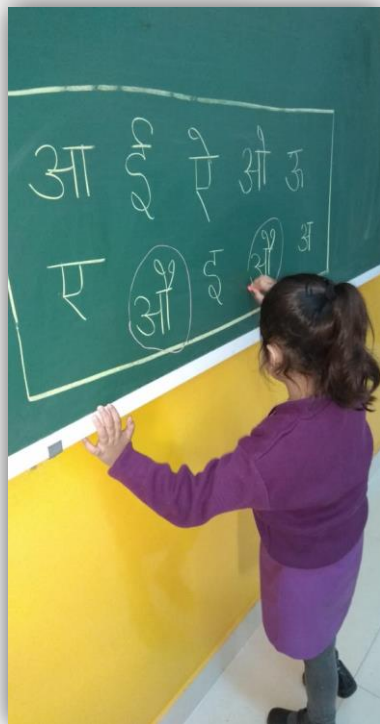 आ ई ऐ ओ ऊ
ए औ इ औ अ